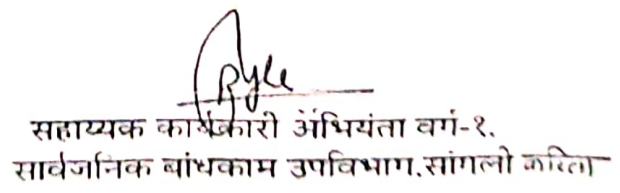 सहाय्यक कार्यकारी अभियंता वर्ग-१.
सार्वजनिक बांधकाम उपविभाग, सांगली करिता